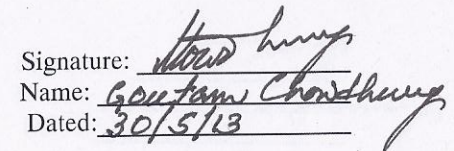 Signature:
Name: Goutam Chowdhury
Dated: 30/5/13